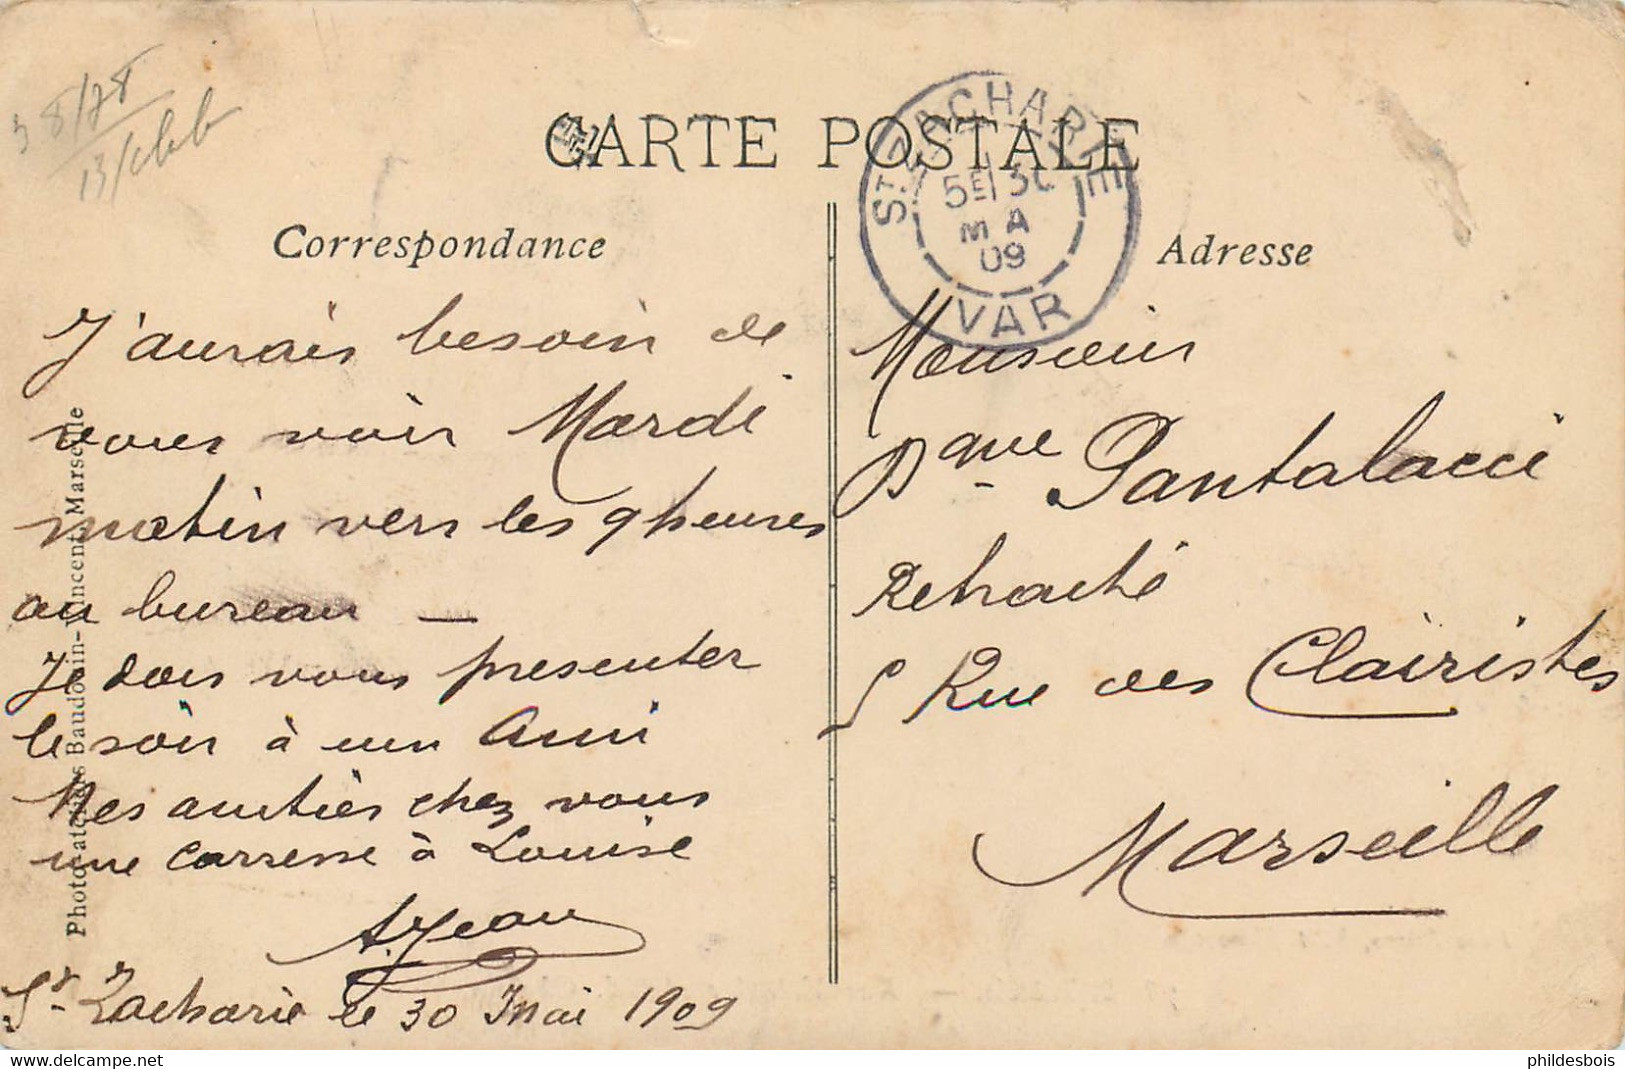 38/78
13/
CARTE POSTALE
Correspondance
Adresse
ST ZACHARIE
5E 30
MA
09
VAR
J'aurais besoin de
vous voir Mardi
matin vers les 9 heures
au bureau —
Je dois vous presenter
le soir à un Ami
Mes amitiés chez vous
une Carresse à Louise
A. Jean
St Zacharie le 30 Mai 1909
Monsieur
Dque Pantalacci
Retraité
5 Rue des Clairistes
Marseille
Phototypie Baudouin-Vincent Marseille
phildesbois